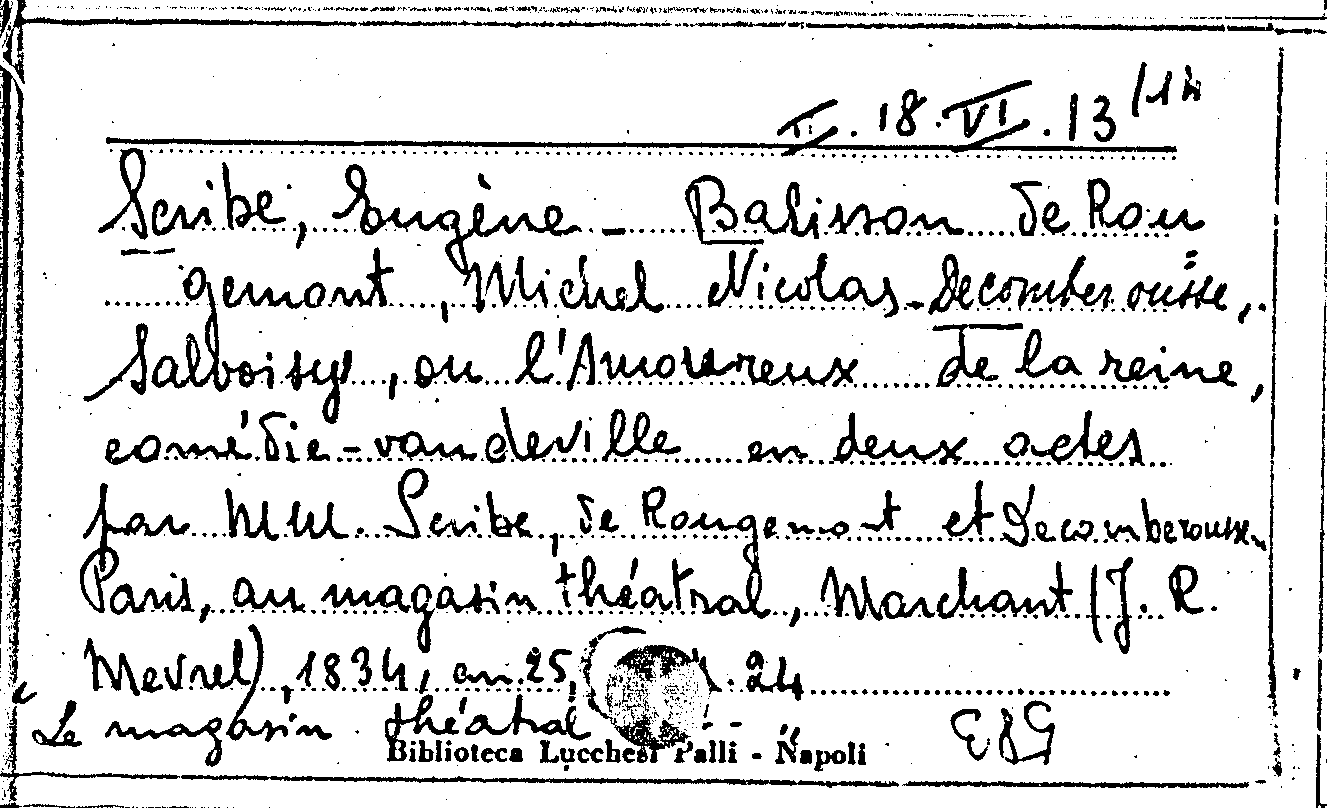 II. 18. VI. 13/14
Scribe, Eugène - Balisson de Rou
gemont, Michel Nicolas - Decomberousse,
Salvoisy, ou l'Amoureux de la reine,
comédie-vaudeville en deux actes
par MM. Scribe, de Rougemont et Decomberousse.
Paris, au magasin théatral, Marchant (J. R.
Mevrel), 1834, cm. 25, 24
"Le magasin théatral "
Biblioteca Lucchesi Palli - Napoli